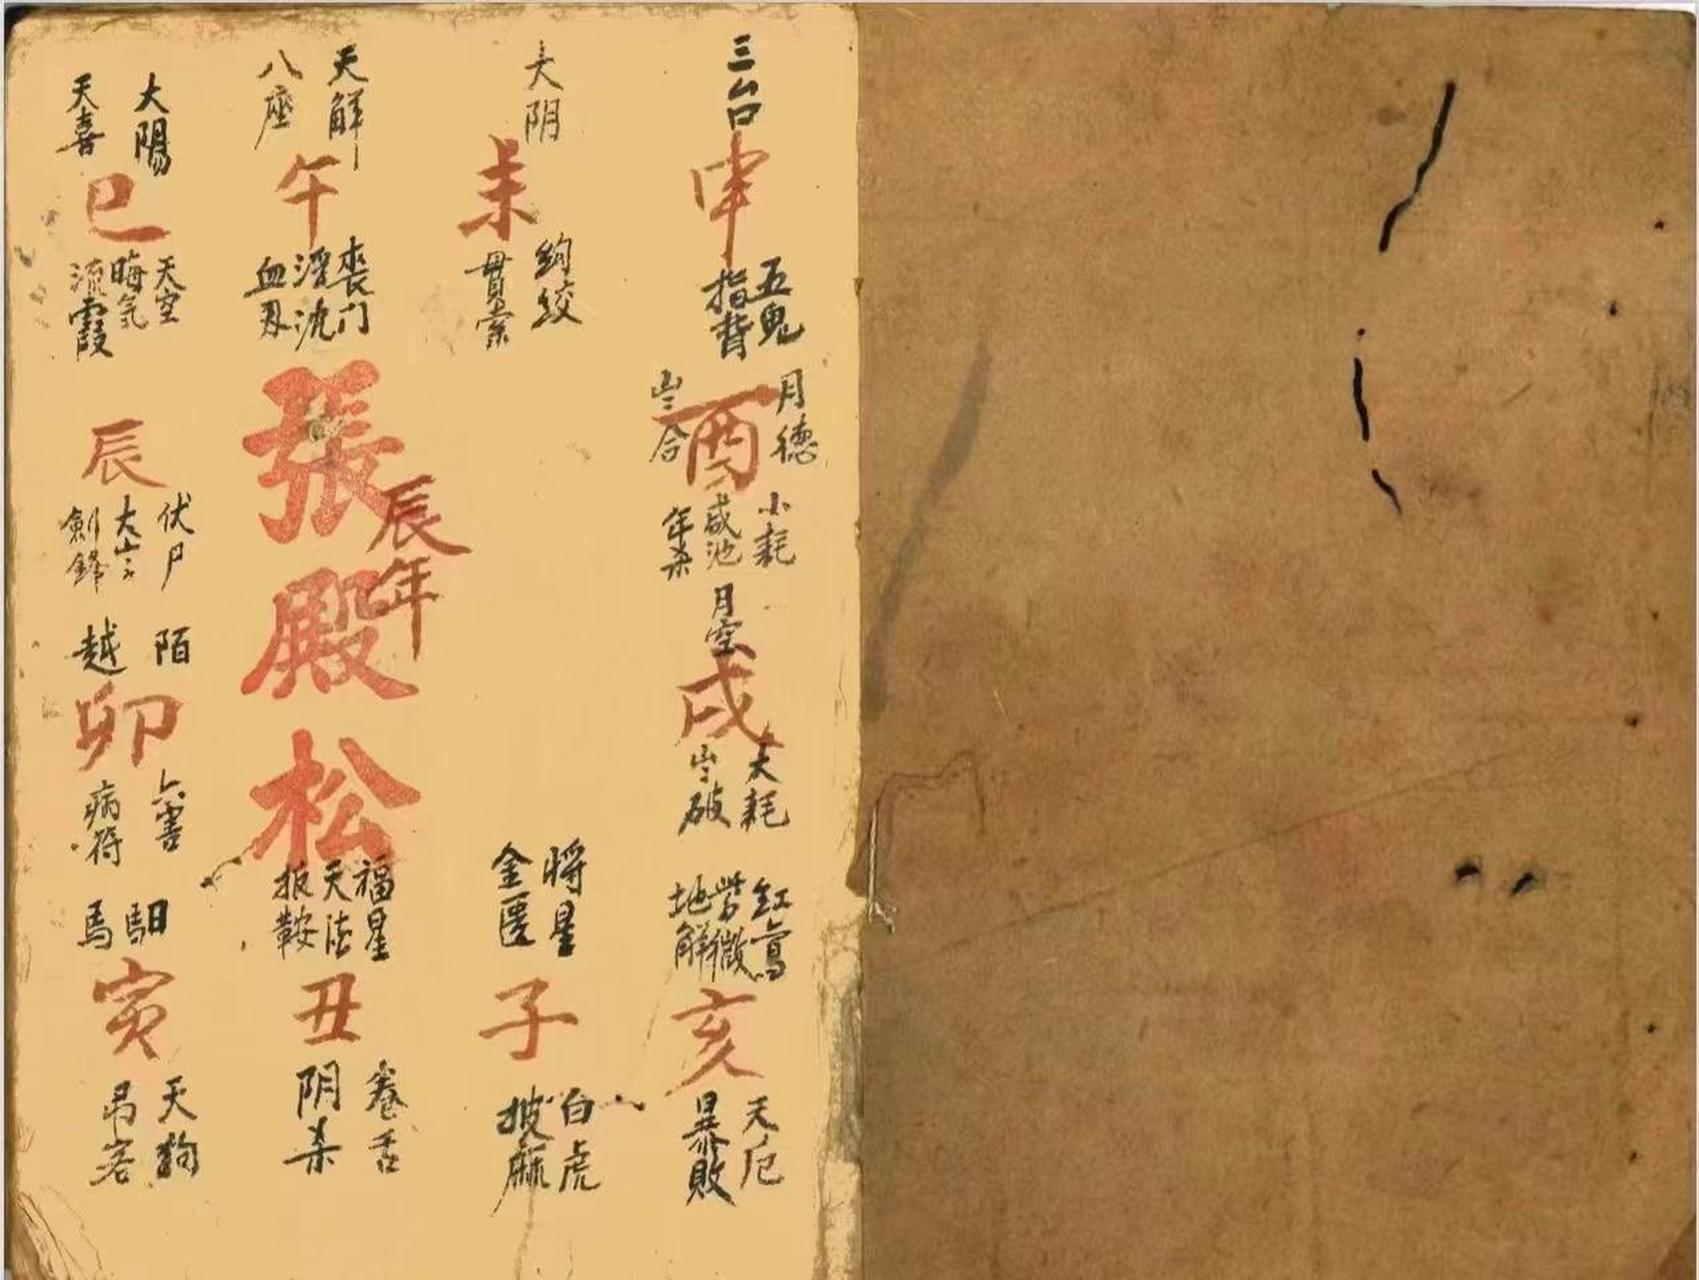 三台
申
五鬼
指背
大阴
未
絇絞
貫索
天解
八座
午
喪门
浮沈
血刃
大陽
天喜
巳
天空
晦气
流霞
辰
伏尸
劍鋒
陌
越
卯
病符
馹
馬
寅
天狗
吊客
張殿松
辰年
福星
天德
扳鞍
丑
卷舌
阴杀
將星
金匱
子
白虎
披麻
月德
合
酉
小耗
咸池
年杀
月空
戌
大耗
破
紅鸞
紫微
地解
亥
天厄
暴敗